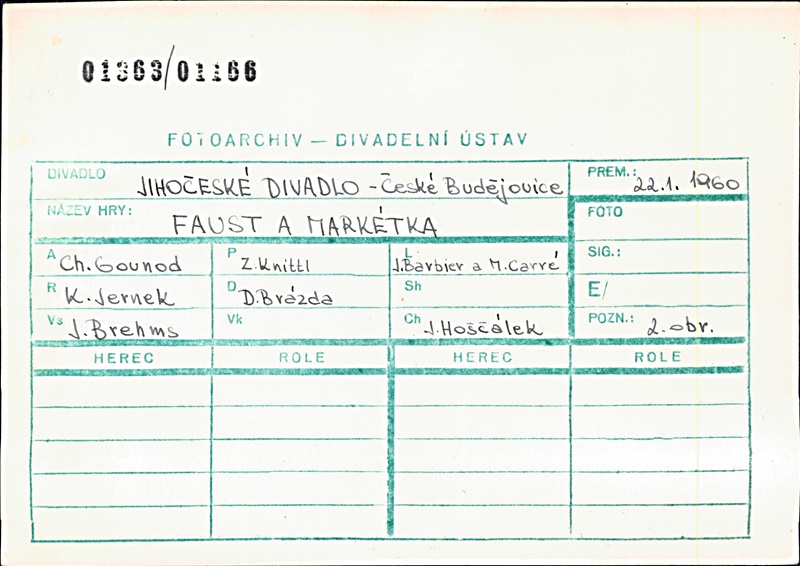 01363/01166
FOTOARCHIV — DIVADELNÍ ÚSTAV
DIVADLO JIHOČESKÉ DIVADLO - České Budějovice PREM.: 22.1. 1960
NÁZEV HRY: FAUST A MARKÉTKA FOTO
A Ch. Gounod P Z. Knittl L J. Barbier a M. Carré SIG.:
R K. Jernek D D. Brázda Sh E/
Vs J. Brehms Vk Ch J. Hoščálek POZN.: 2. obr.
HEREC ROLE HEREC ROLE